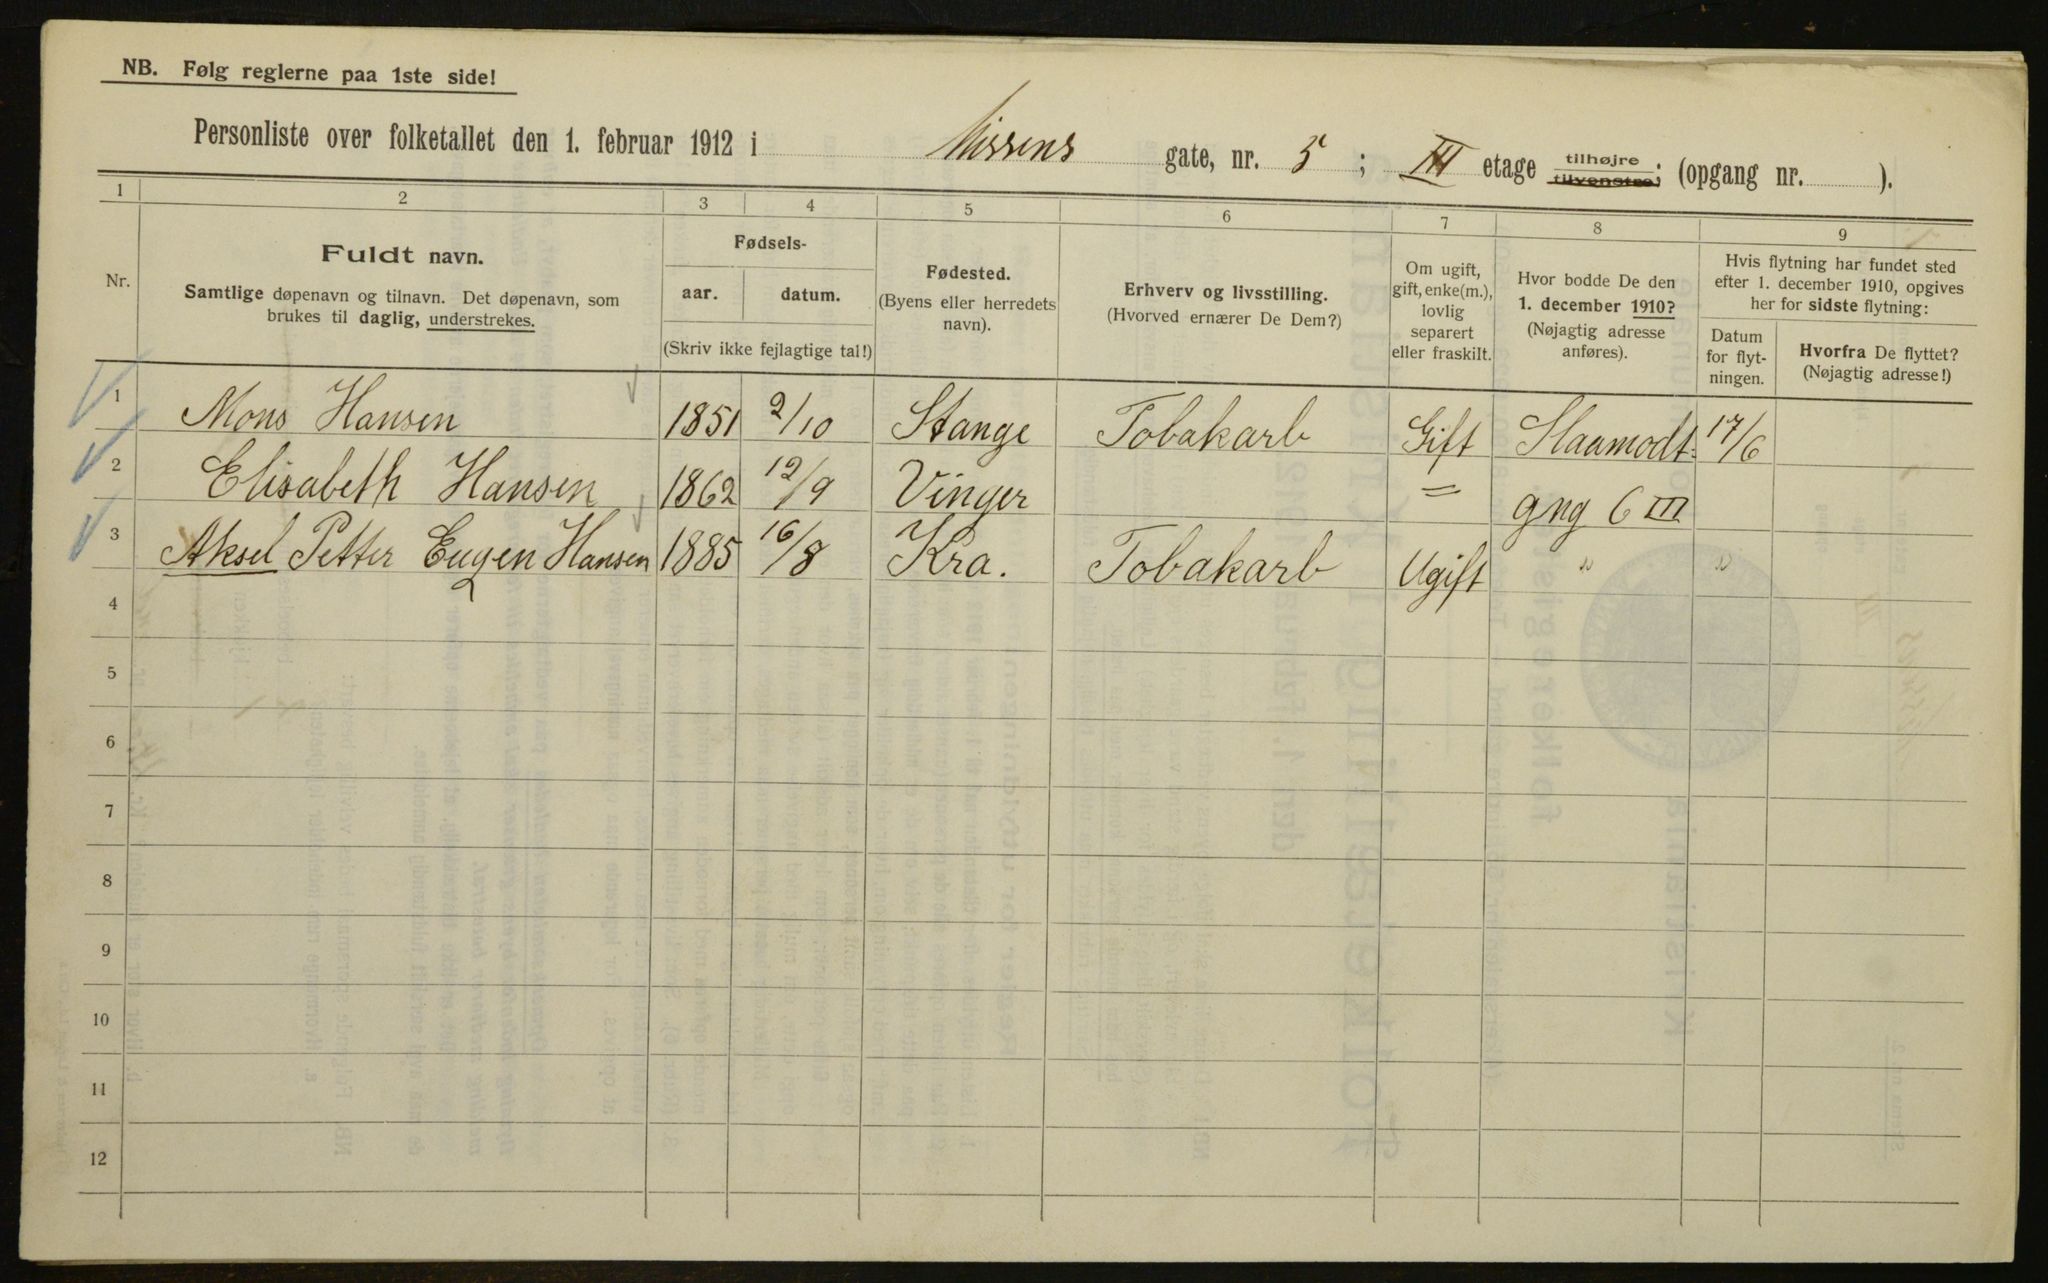 NB. Følg reglerne paa 1ste side!
Personliste over folketallet den 1. februar 1912 i Nissens gate, nr. 5 ; III etage tilhøjre tilvenstre; (opgang nr. ).
1 2 3 4 5 6 7 8 9
Nr.
Fuldt navn.
Samtlige døpenavn og tilnavn. Det døpenavn, som
brukes til daglig, understrekes.
Fødsels-
aar. datum.
(Skriv ikke fejlagtige tal!)
Fødested.
(Byens eller herredets
navn).
Erhverv og livsstilling.
(Hvorved ernærer De Dem?)
Om ugift,
gift, enke(m.),
lovlig
separert
eller fraskilt.
Hvor bodde De den
1. december 1910?
(Nøjagtig adresse
anføres).
Hvis flytning har fundet sted
efter 1. december 1910, opgives
her for sidste flytning:
Datum
for flyt-
ningen.
Hvorfra De flyttet?
(Nøjagtig adresse!)
1 Mons Hansen 1851 2/10 Stange Tobakarb Gift Slaamodt: 17/6
2 Elisabeth Hansen 1862 12/9 Vinger = gng 6 III
3 Aksel Petter Eugen Hansen 1885 16/8 Kra. Tobakarb Ugift " "
4
5
6
7
8
9
10
11
12